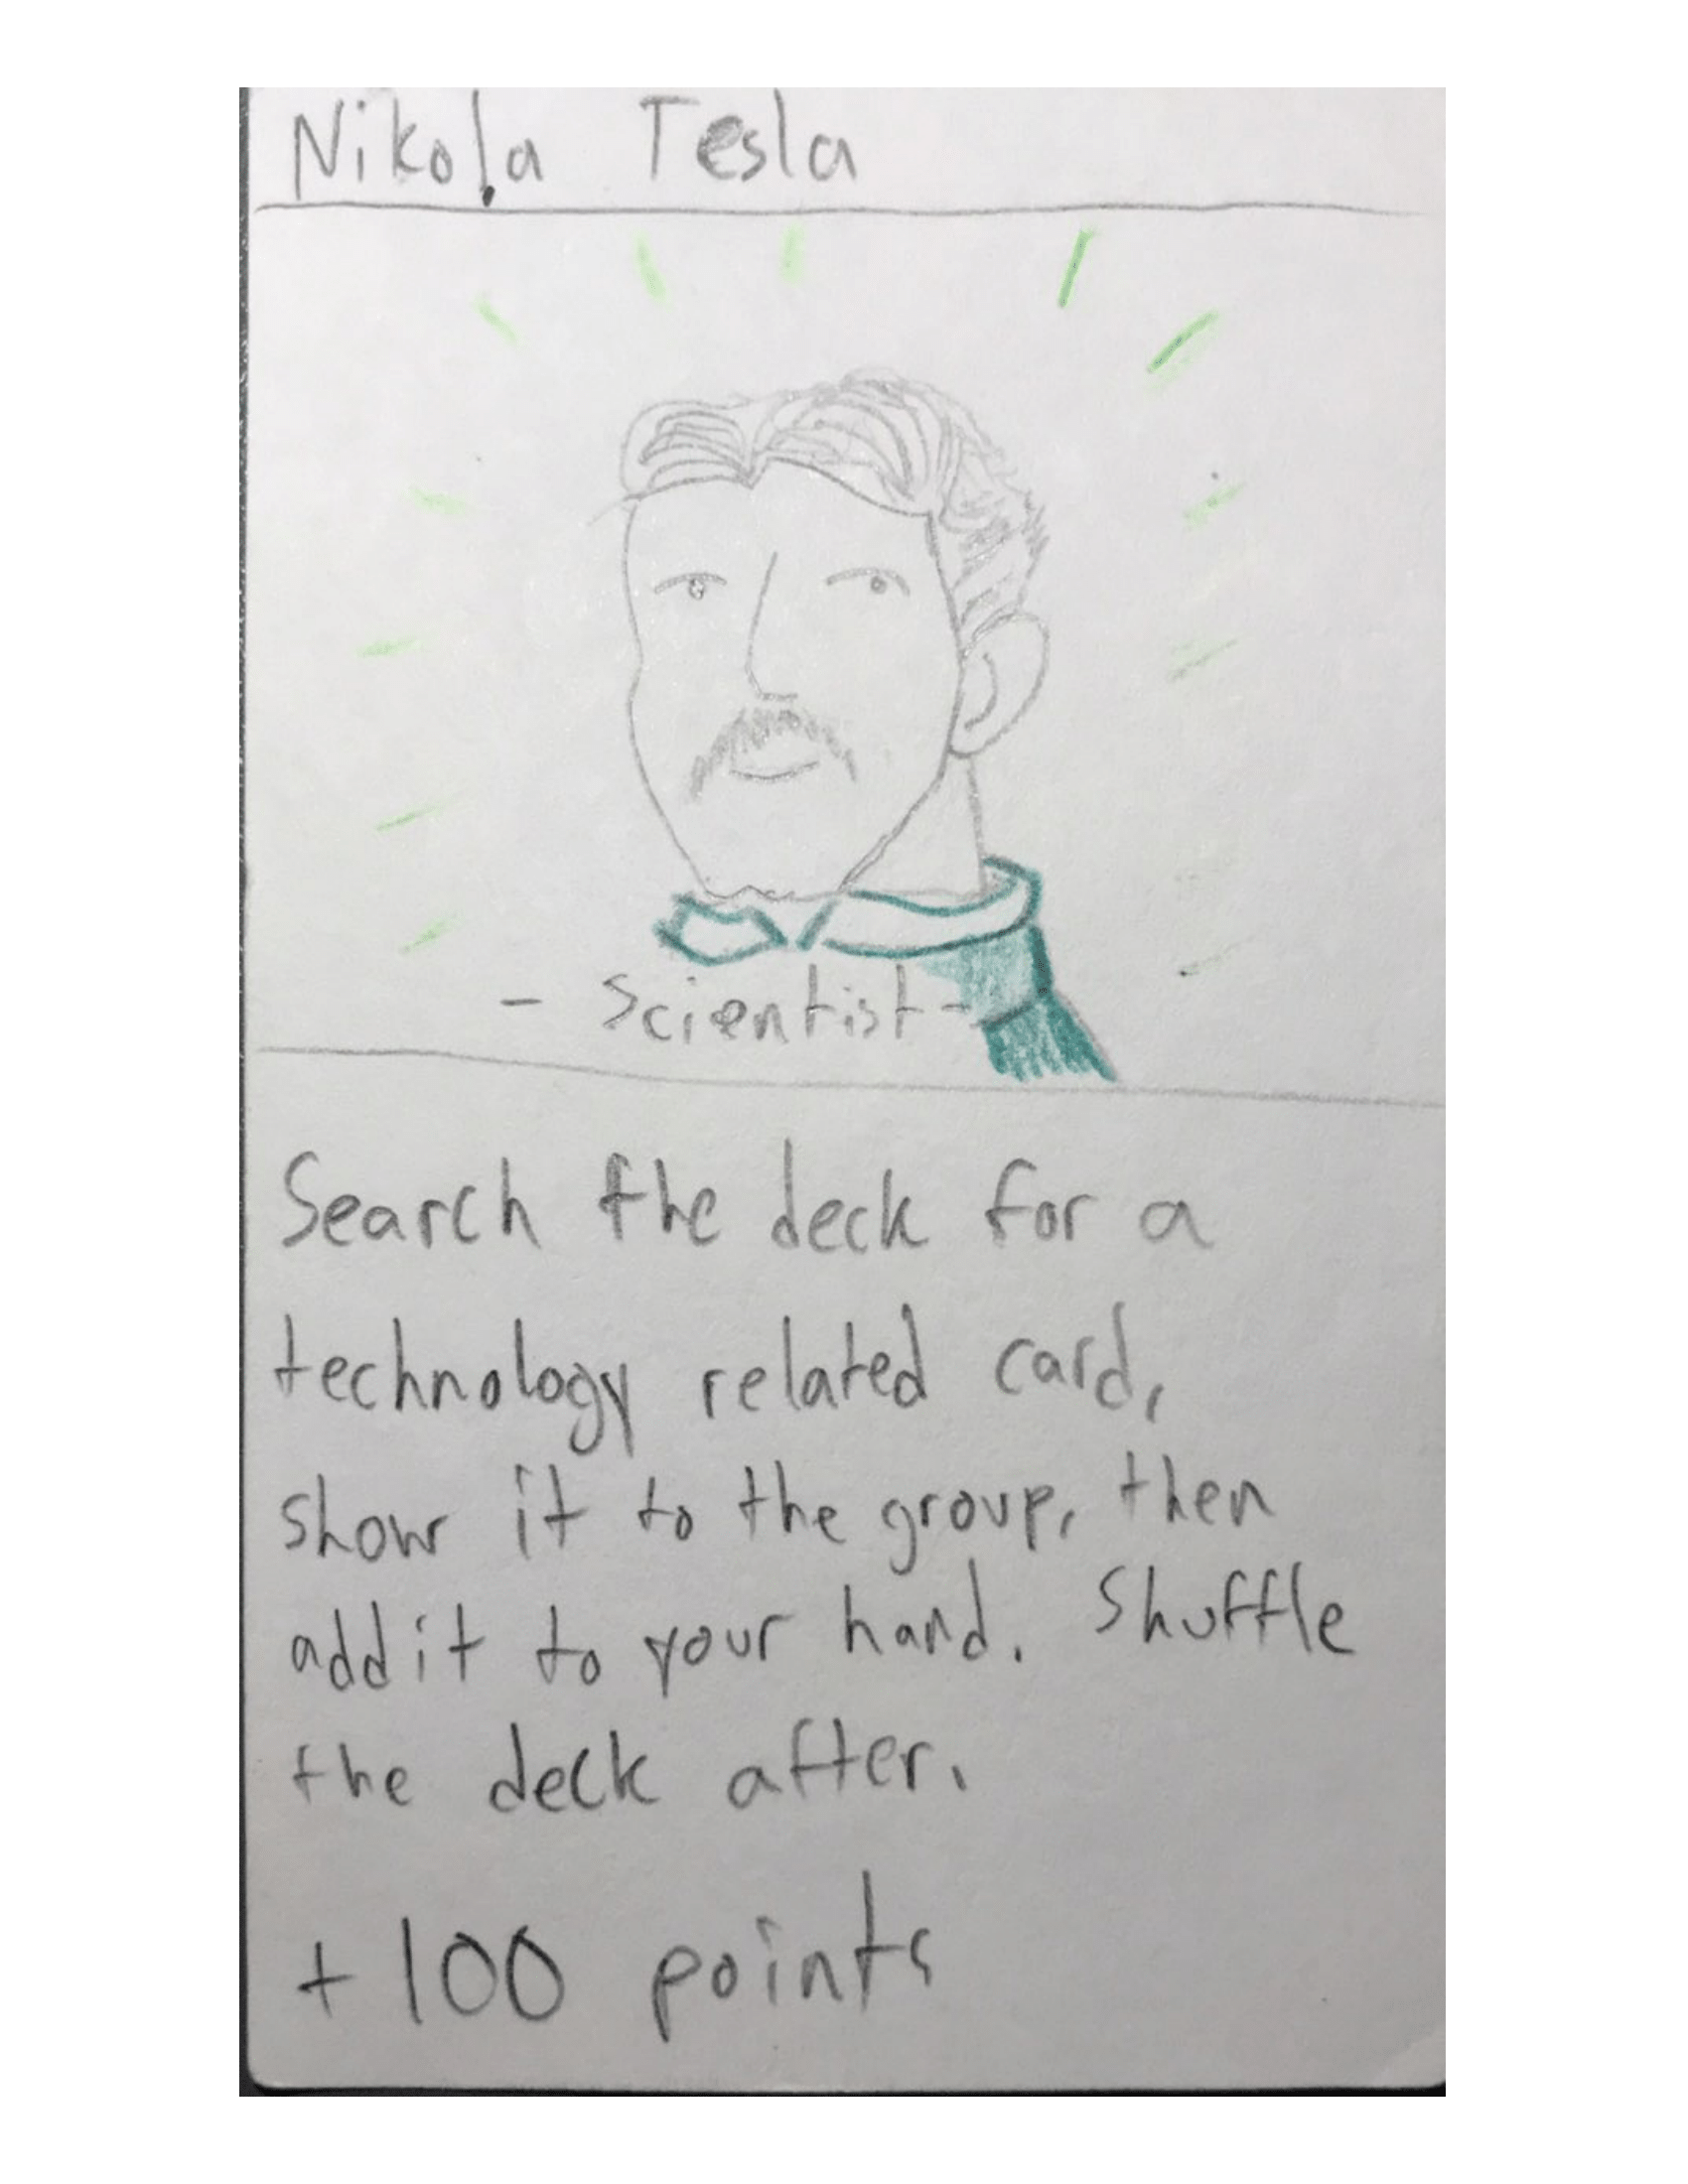 Nikola Tesla
- Scientist -
Search the deck for a
technology related card,
show it to the group, then
add it to your hand. Shuffle
the deck after.
+100 points